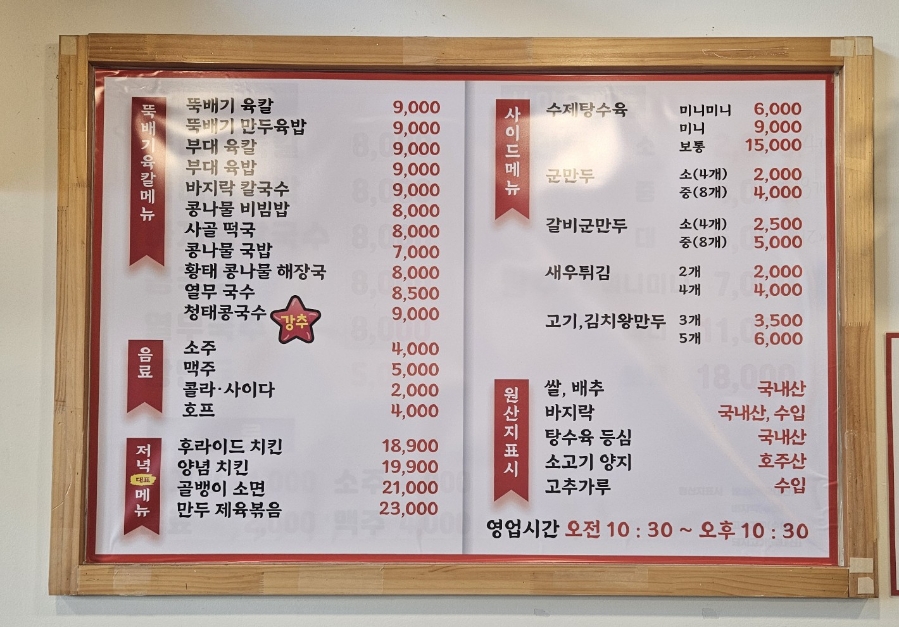 뚝배기육칼메뉴
뚝배기 육칼 9,000
뚝배기 만두육밥 9,000
부대 육칼 9,000
부대 육밥 9,000
바지락 칼국수 9,000
콩나물 비빔밥 8,000
사골 떡국 8,000
콩나물 국밥 7,000
황태 콩나물 해장국 8,000
열무 국수 8,500
청태콩국수 9,000
강추
음료
소주 4,000
맥주 5,000
콜라·사이다 2,000
호프 4,000
저녁 대표 메뉴
후라이드 치킨 18,900
양념 치킨 19,900
골뱅이 소면 21,000
만두 제육볶음 23,000
사이드메뉴
수제탕수육 미니미니 6,000
미니 9,000
보통 15,000
군만두 소(4개) 2,000
중(8개) 4,000
갈비군만두 소(4개) 2,500
중(8개) 5,000
새우튀김 2개 2,000
4개 4,000
고기,김치왕만두 3개 3,500
5개 6,000
원산지표시
쌀, 배추 국내산
바지락 국내산, 수입
탕수육 등심 국내산
소고기 양지 호주산
고추가루 수입
영업시간 오전 10 : 30 ~ 오후 10 : 30